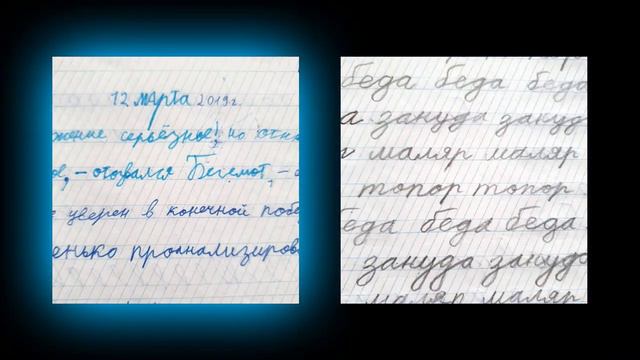 12 марта 2019г.
жение серьёзное, но отни
ое, – отозвался Бегемот, – а
уверен в конечной побе
енько проанализирова
беда беда беда
а зануда зануд
маляр маляр
топор топор
беда беда беда
зануда зануда
маляр маляр